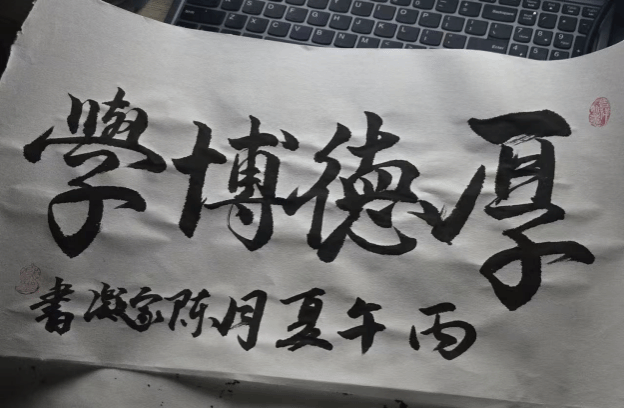 厚德博學
丙午夏月陈家凝書